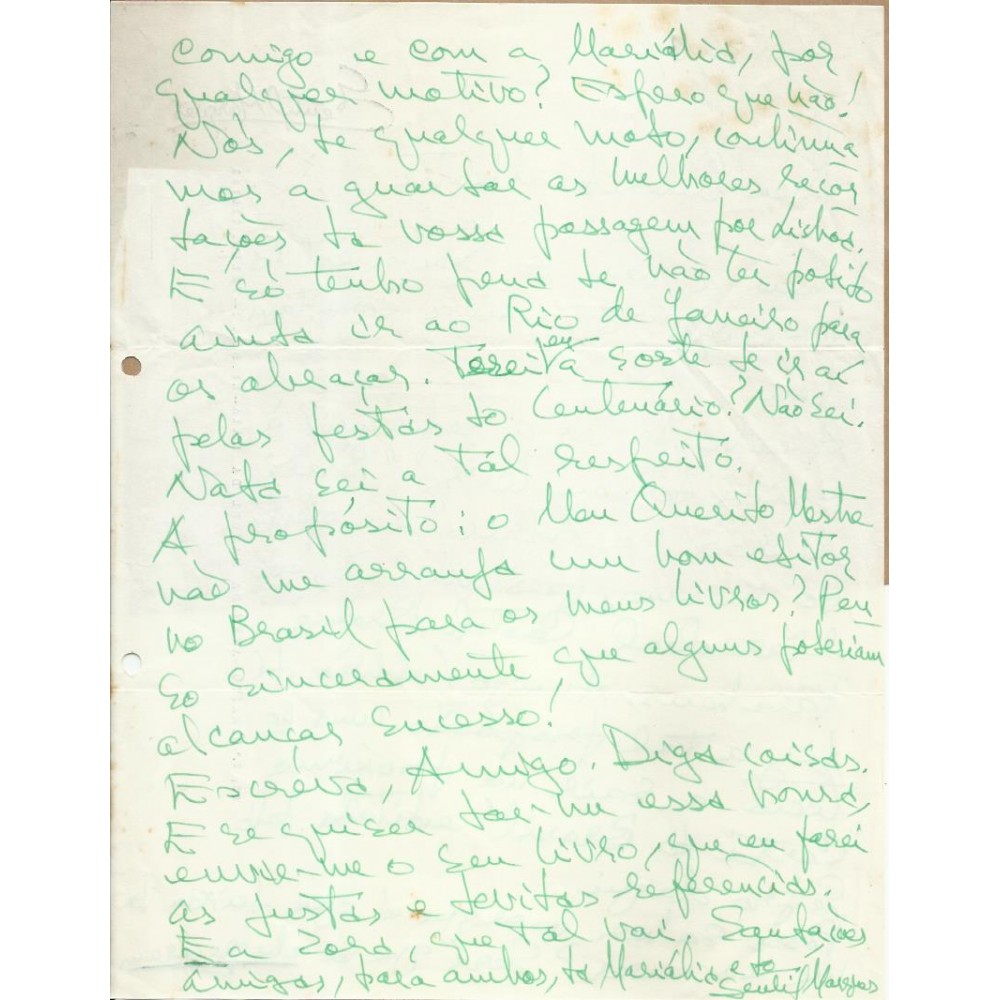 comigo e com a Mariália, por
qualquer motivo? Espero que não!
Nós, de qualquer modo, continua
mos a guardar as melhores recor
dações da vossa passagem por Lisboa.
E só tenho pena de não ter podido
ainda ir ao Rio de Janeiro para
os abraçar. Terei eu a sorte de ir aí
pelas festas do Centenário? Não sei.
Nada sei a tal respeito.
A propósito: o Meu Querido Mestre
não me arranja um bom editor
no Brasil para os meus livros? Pen
so sinceramente, que alguns poderiam
alcançar sucesso!
Escreva, Amigo. Diga coisas.
E se quiser dar-me essa honra,
envie-me o seu livro, que eu farei
as justas e devidas referências.
E a Zora, que tal vai. Saudações
amigas, para ambos, da Mariália e do
Gentil Marques